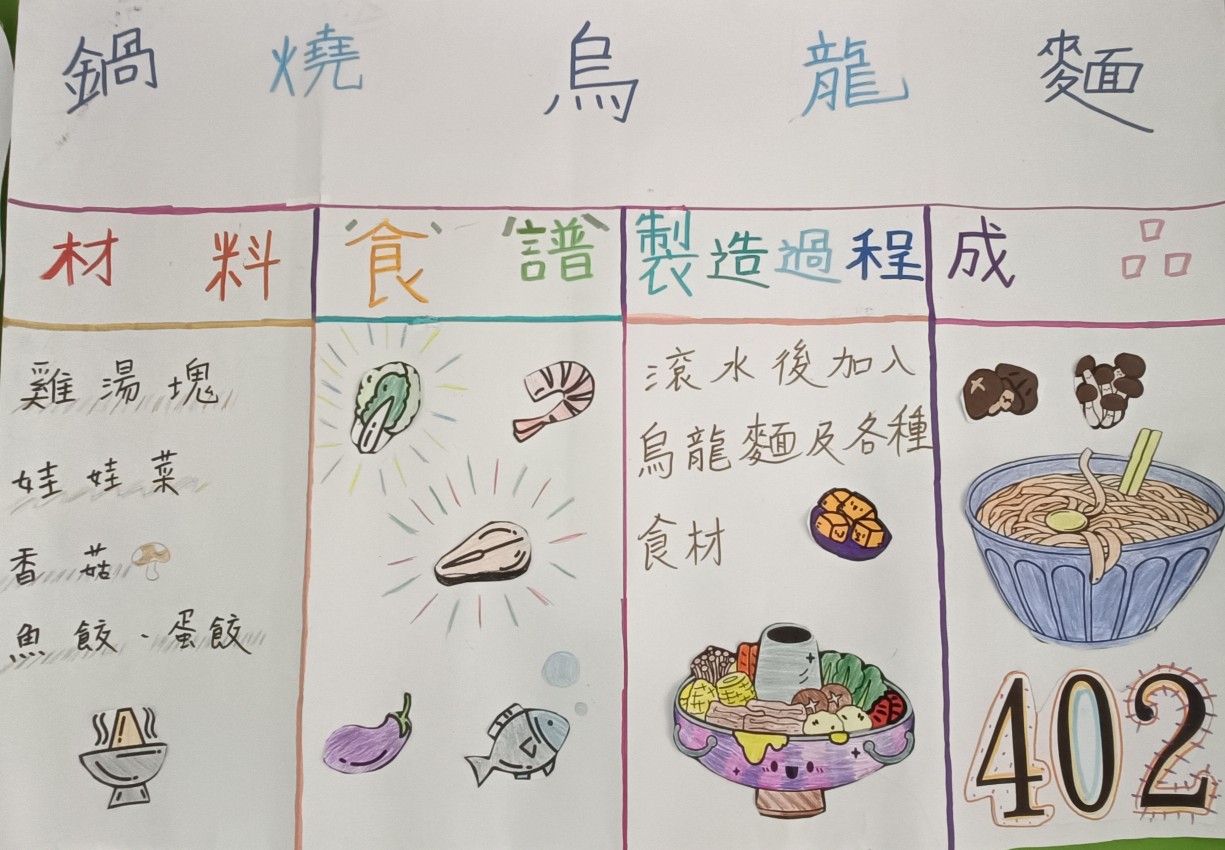 鍋燒烏龍麵
材料
雞湯塊
娃娃菜
香菇
魚餃、蛋餃
食譜
製造過程
滾水後加入
烏龍麵及各種
食材
成品
402